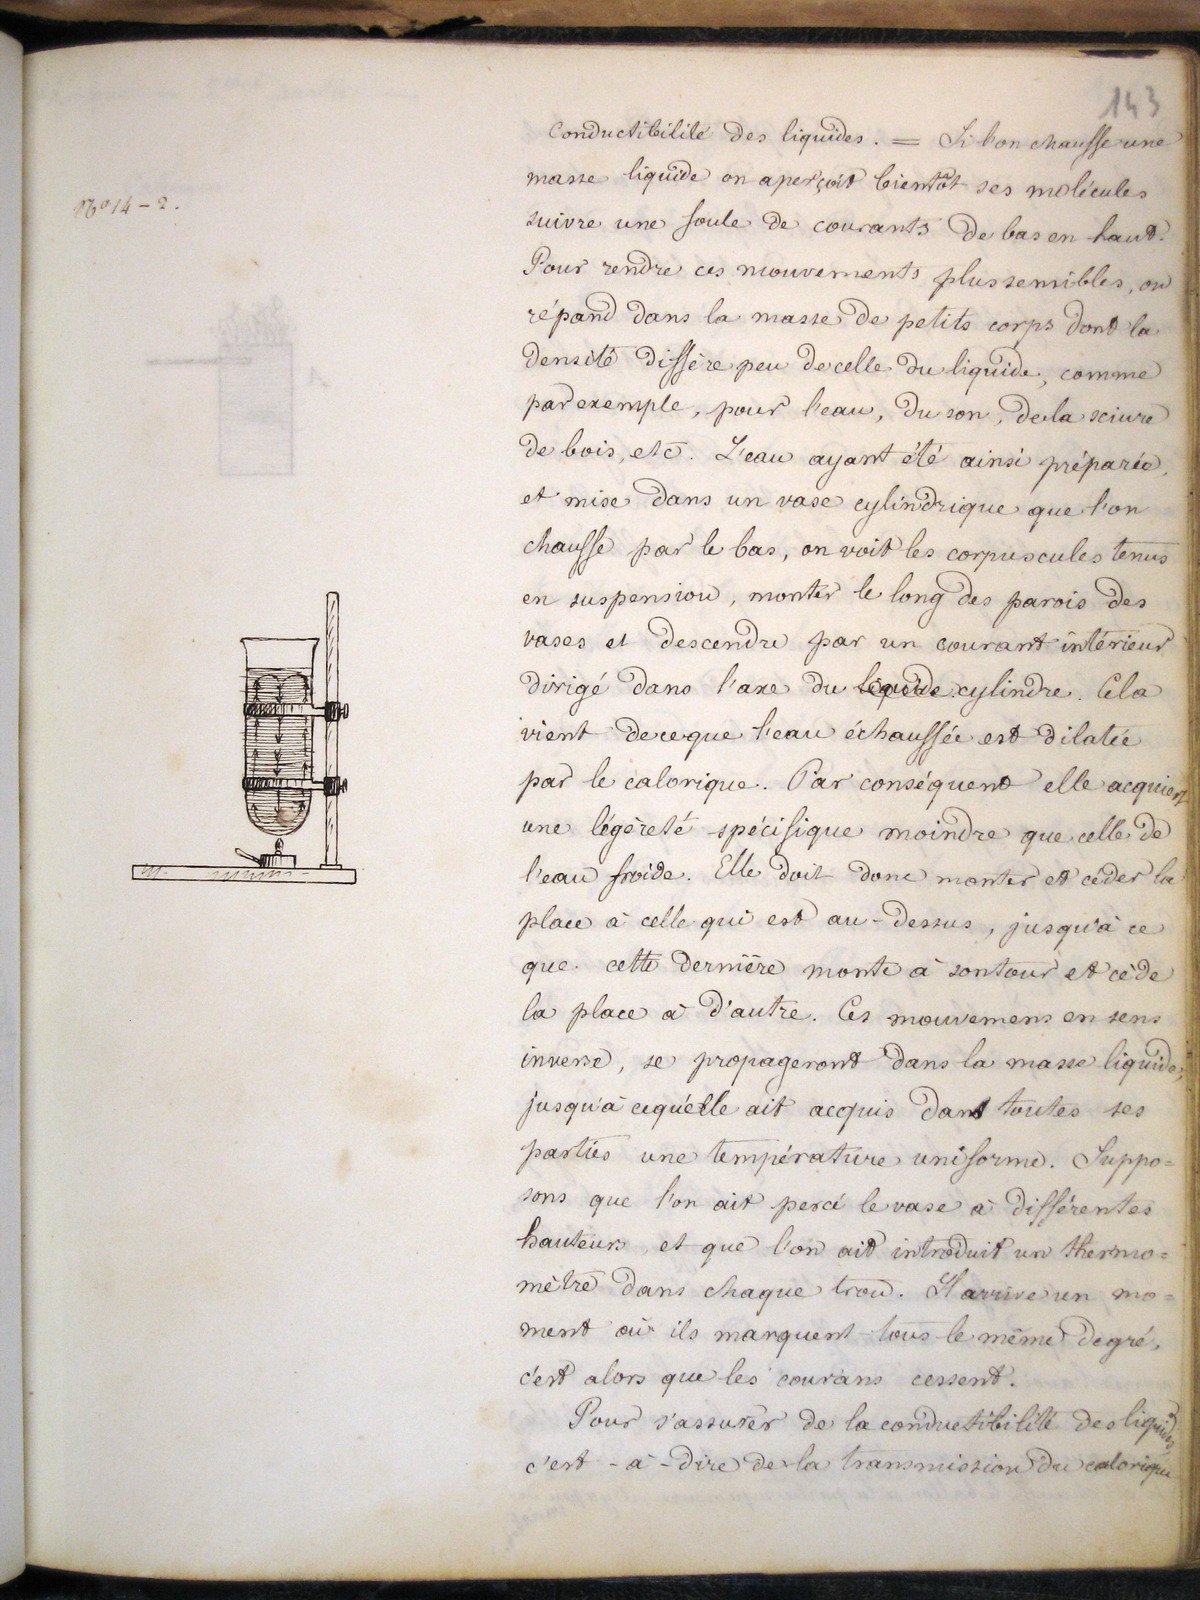 143
N° 14 - 2.
Conductibilité des liquides. = Si l'on chauffe une
masse liquide on aperçoit bientôt ses molécules
suivre une foule de courants de bas en haut.
Pour rendre ces mouvements plus sensibles, on
répand dans la masse de petits corps dont la
densité diffère peu de celle du liquide, comme
par exemple, pour l'eau, du son, de la sciure
de bois, etc. L'eau ayant été ainsi préparée,
et mise dans un vase cylindrique que l'on
chauffe par le bas, on voit les corpuscules tenus
en suspension, monter le long des parois des
vases et descendre par un courant intérieur
dirigé dans l'axe du liquide cylindre. Cela
vient de ce que l'eau échauffée est dilatée
par le calorique. Par conséquent elle acquiert
une légèreté spécifique moindre que celle de
l'eau froide. Elle doit donc monter et céder la
place à celle qui est au-dessus, jusqu'à ce
que cette dernière monte à son tour et cède
la place à d'autre. Ces mouvemens en sens
inverse, se propageront dans la masse liquide,
jusqu'à ce qu'elle ait acquis dans toutes ses
parties une température uniforme. Suppo=
sons que l'on ait percé le vase à différentes
hauteurs, et que l'on ait introduit un thermo=
mètre dans chaque trou. Il arrive un mo=
ment où ils marquent tous le même degré,
c'est alors que les courans cessent.
Pour s'assurer de la conductibilité des liquides,
c'est-à-dire de la transmission du calorique